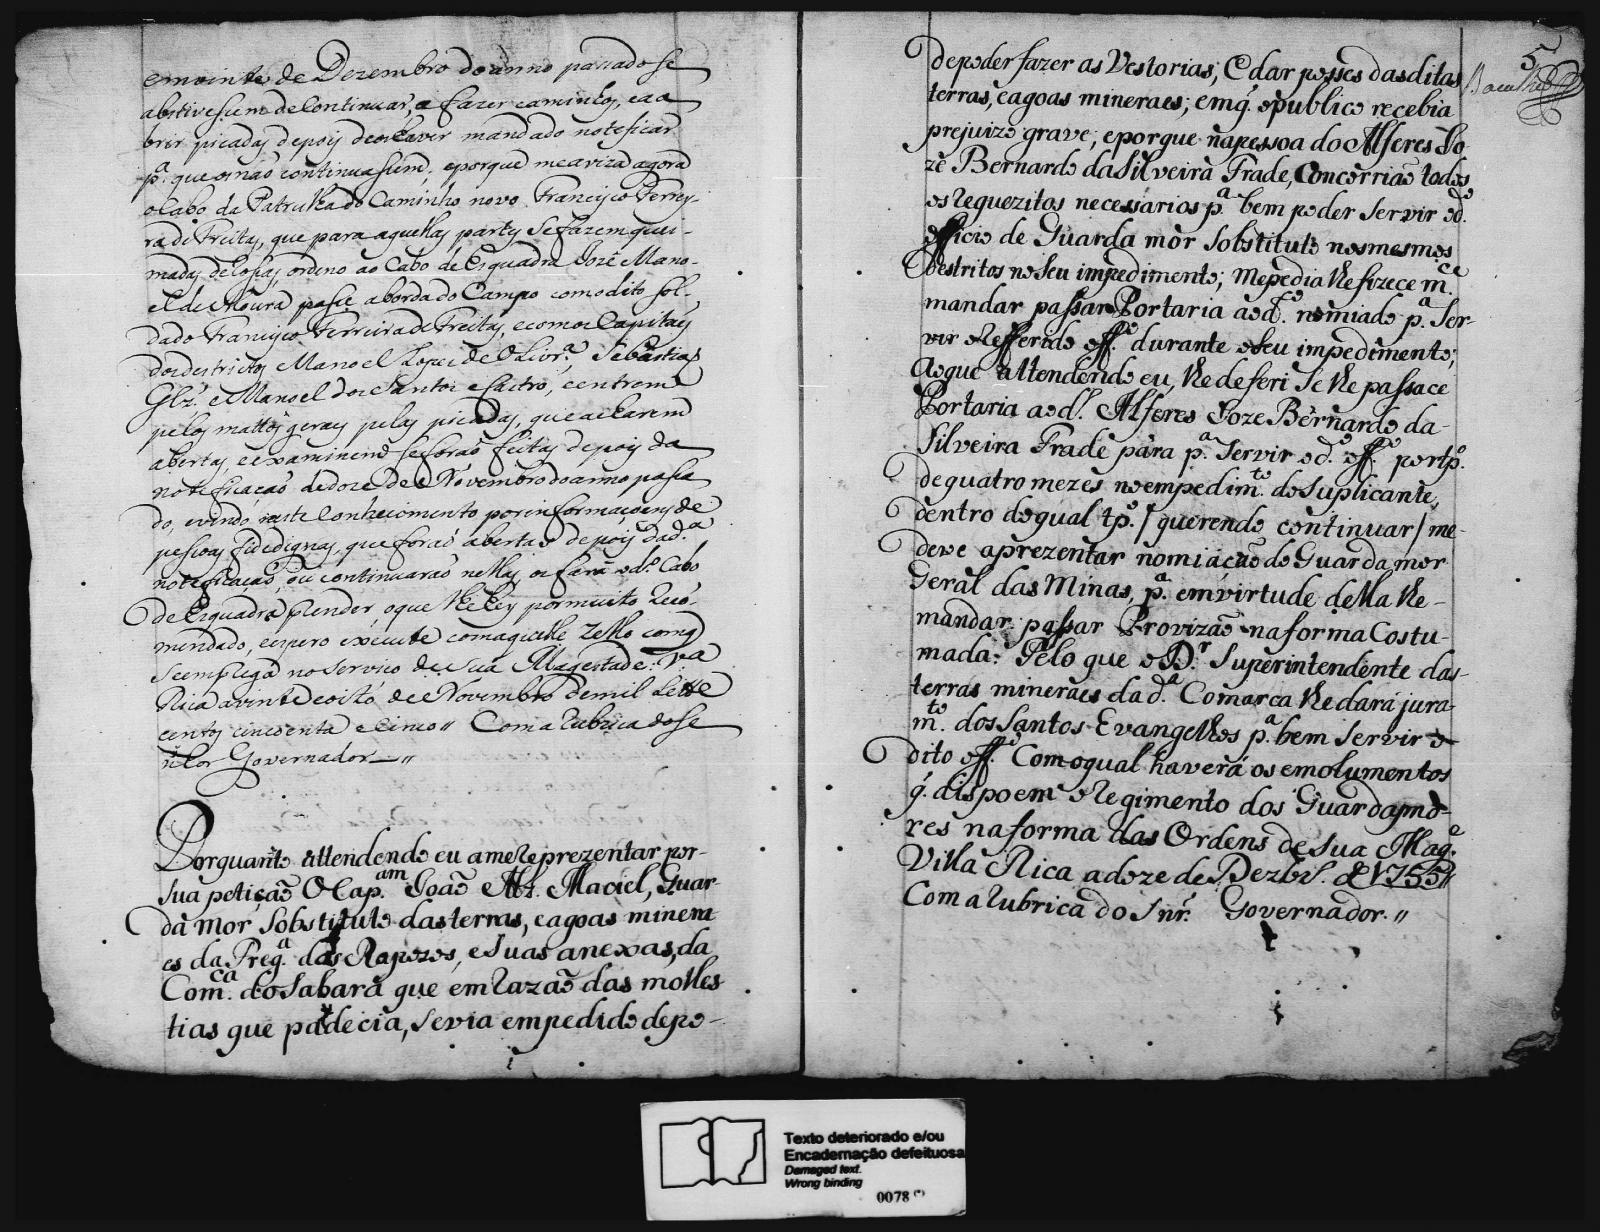 em vinte de Dezembro do anno passado se
abstivessem de continuar, a fazer caminhos, e a a
brir picadas depois de os haver mandado noteficar
p.ª que o não continuassem. e porque me aviza agora
o Cabo da Patrulha do Caminho novo Francisco Ferrey-
ra de Freitas, que para aquellas partes se fazem quei-
madas, de Rossas, ordeno ao Cabo de Esquadra Jozê Mano-
el de Moura passe a borda do Campo com o dito sol-
dado Francisco Ferreira de Freitas, e com os Capitães
dos destrictos Manoel Lopes de Olivr.ª, Sebastião
Glz'. e Manoel dos Santos e Castro, e entrem
pelos mattos geraes pelas picadas, que acharem
abertas, e examinem se forão feitas depois da
noteficação de doze de Novembro do anno passa
do, e vindo neste Conhecimento por informaçoens de
pessoas fidedignas, que forão abertas depois da d.ª
noteficação, ou continuarão nellas os fará o d.º Cabo
de Esquadra prender o que lhe hey por muito Reco-
mendado, e espero execute com aquelle zello com q̃
se emprega no serviço de sua Magestade. V.ª
Rica a vinte e oito de Novembro de mil sette
centos cincoenta e Cinco // Com a Rubrica do Se
nhor Governador —//
Porquanto attendendo eu a me Reprezentar por-
sua petição O Cap.am João Alz. Maciel, Guar-
da mor Sobstituto das terras, e agoas minera
es da Freg.ª das Rapozos, e suas anexas, da
Com.ca do Sabarâ que em Razão das moles
tias que padecia, se via empedido de po-
5
de poder fazer as Vestorias, e dar posses das ditas
terras, e agoas mineraes; em q̃. o publico recebia
prejuizo grave; e porque na pessoa do Alferes Jo-
zê Bernardo da Silveira Frade, Concorrião todos
os Requezitos necessarios p.ª bem poder servir o d.º
officio de Guarda mor Sobstituto nos mesmos
destritos no seu impedimento; me pedia lhe fizece m.ce
mandar passar Portaria ao d.º nomiado p.ª Ser-
vir o Refferido off.º durante o seu impedimento;
Ao que attendendo eu, lhe deferi se lhe passace
Portaria ao d.º Alferes Joze Bernardo da-
Silveira Frade para p.ª Servir o d.º off.º por tp.º
de quatro mezes no empedim.to do Suplicante,
dentro do qual tp.º / querendo continuar / me-
deve aprezentar nomiação do Guarda mor
Geral das Minas, p.ª em virtude della lhe-
mandar passar Provizão na forma Costu-
mada: Pelo que o D.r Superintendente das-
terras mineraes da d.ª Comarca lhe dará jura-
m.to dos Santos Evangelhos p.ª bem Servir o
dito off.º Com o qual haverá os emolumentos
q̃. dispoem o Regimento dos Guardamo-
res na forma das Ordens de Sua Mag.e
Villa Rica a doze de Dezbr.º de 1755//
Com a Rubrica do Snr. Governador. //
Texto deteriorado e/ou
Encadernação defeituosa
Damaged text.
Wrong binding
0078